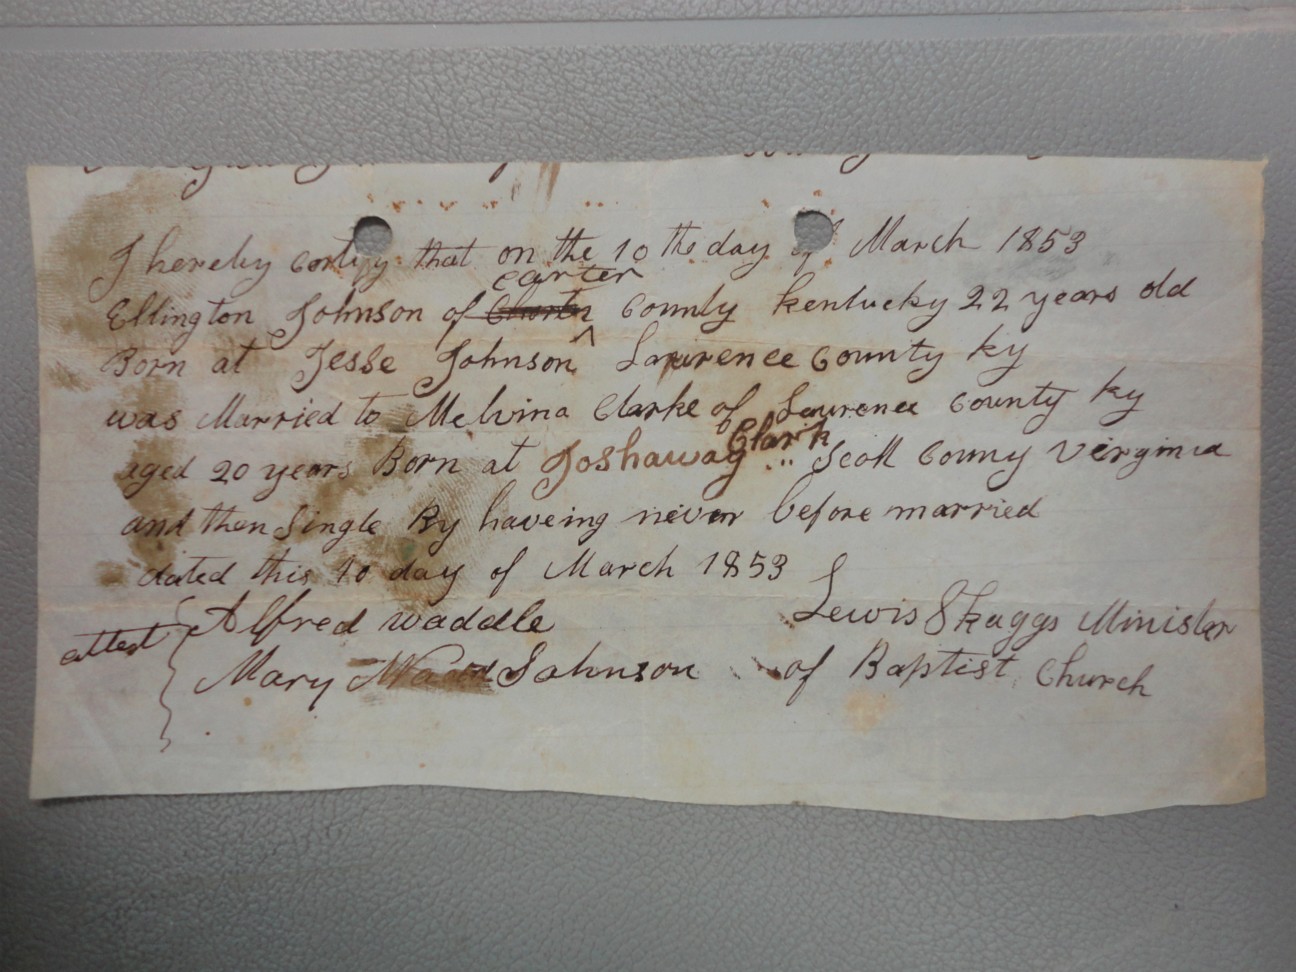 I hereby certify that on the 10 th day of March 1853
carter
Ellington Johnson of County Kentucky 22 years old
Born at Jesse Johnson ^ Lawrence County Ky
was Married to Melvina Clarke of Lawrence County Ky
Clark
aged 20 years Born at Joshaway Scott Couny Virginia
and then Single By haveing never before married
dated this 10 day of March 1853
attest { Alfred waddle Lewis Skaggs Minister
Mary Johnson of Baptist Church